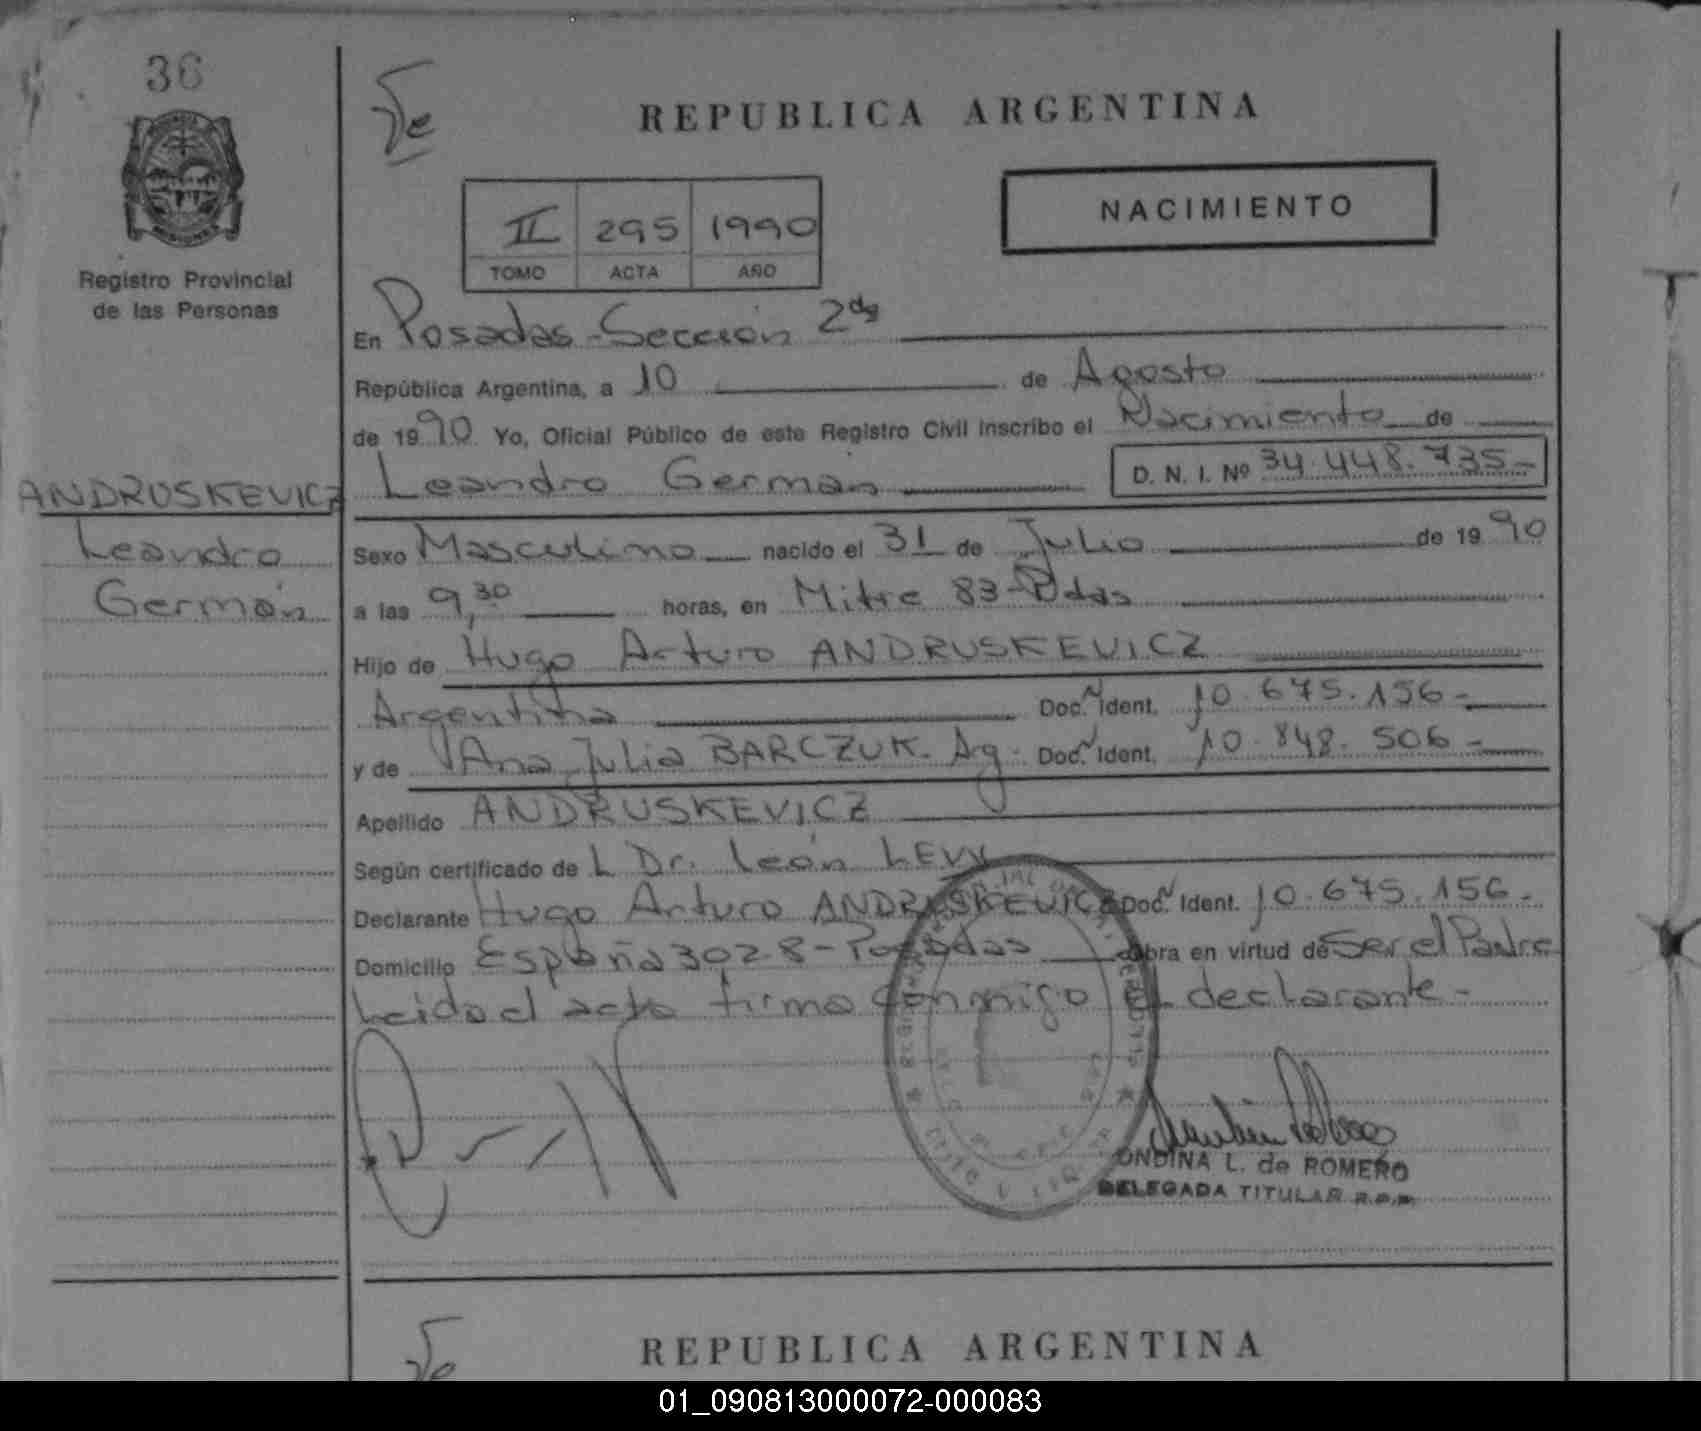 36
REPUBLICA ARGENTINA
NACIMIENTO
II 295 1990
TOMO ACTA AÑO
Registro Provincial
de las Personas
En Posadas - Sección 2da
República Argentina, a 10 de Agosto
de 1990 Yo, Oficial Público de este Registro Civil inscribo el Nacimiento de
Leandro Germán D. N. I. Nº 34.448.735-
ANDRUSKEVICZ
Leandro
Germán
Sexo Masculino nacido el 31 de Julio de 1990
a las 9,30 horas, en Mitre 83-Pdas
Hijo de Hugo Arturo ANDRUSKEVICZ
Argentina Doc. Ident. 10.675.156-
y de Ana Julia BARCZUK. Arg. Doc. Ident. 10.848.506-
Apellido ANDRUSKEVICZ
Según certificado de L Dr. León LEVY
Declarante Hugo Arturo ANDRUSKEVICZ Doc. Ident. 10.675.156-
Domicilio España 3028-Posadas Obra en virtud de Ser el Padre
Leida el acta firma conmigo el declarante-
ONDINA L. de ROMERO
DELEGADA TITULAR R.P.P.
REPUBLICA ARGENTINA
01_090813000072-000083